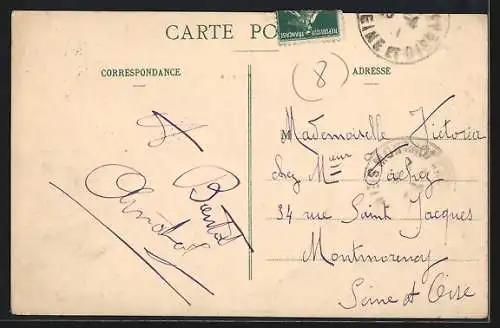 CARTE PO
REPUBLIQUE FRANCAISE
SEINE ET OISE
CORRESPONDANCE
(8)
ADRESSE
Mademoiselle Victoria
chez Mᵉᵘʳ Vachez
34 rue Saint Jacques
Montmorency
Seine et Oise